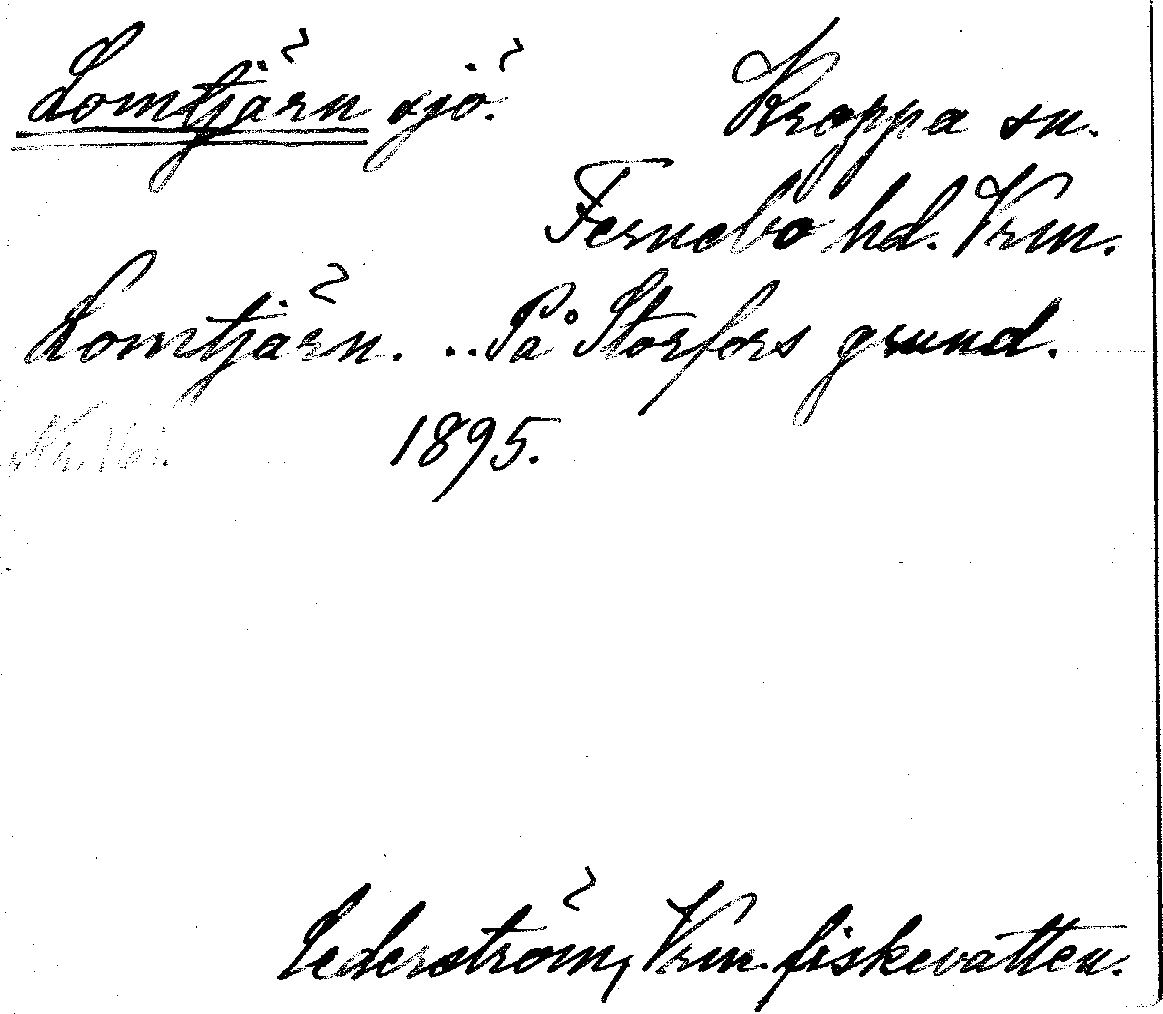 Lomtjärn sjö. Kroppa sn.
Fernebo hd. Vrm.
Lomtjärn. ... På Storfors grund.
1895.
Cederström, Vrm. fiskevatten.